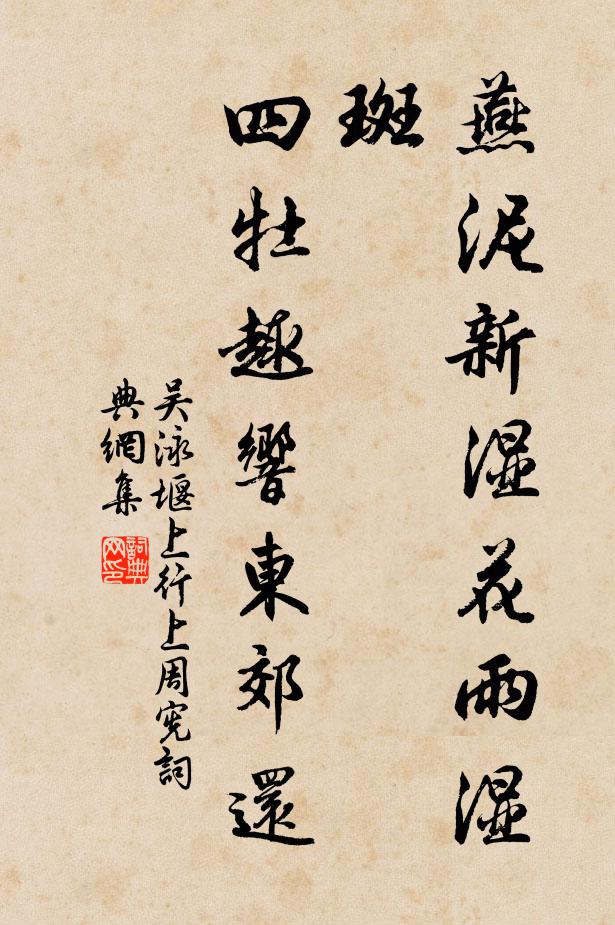 燕泥新湿花雨湿
斑
四牡趣響東郊還
吴泳堰上行上周宪詞
典網集
詞典
网印